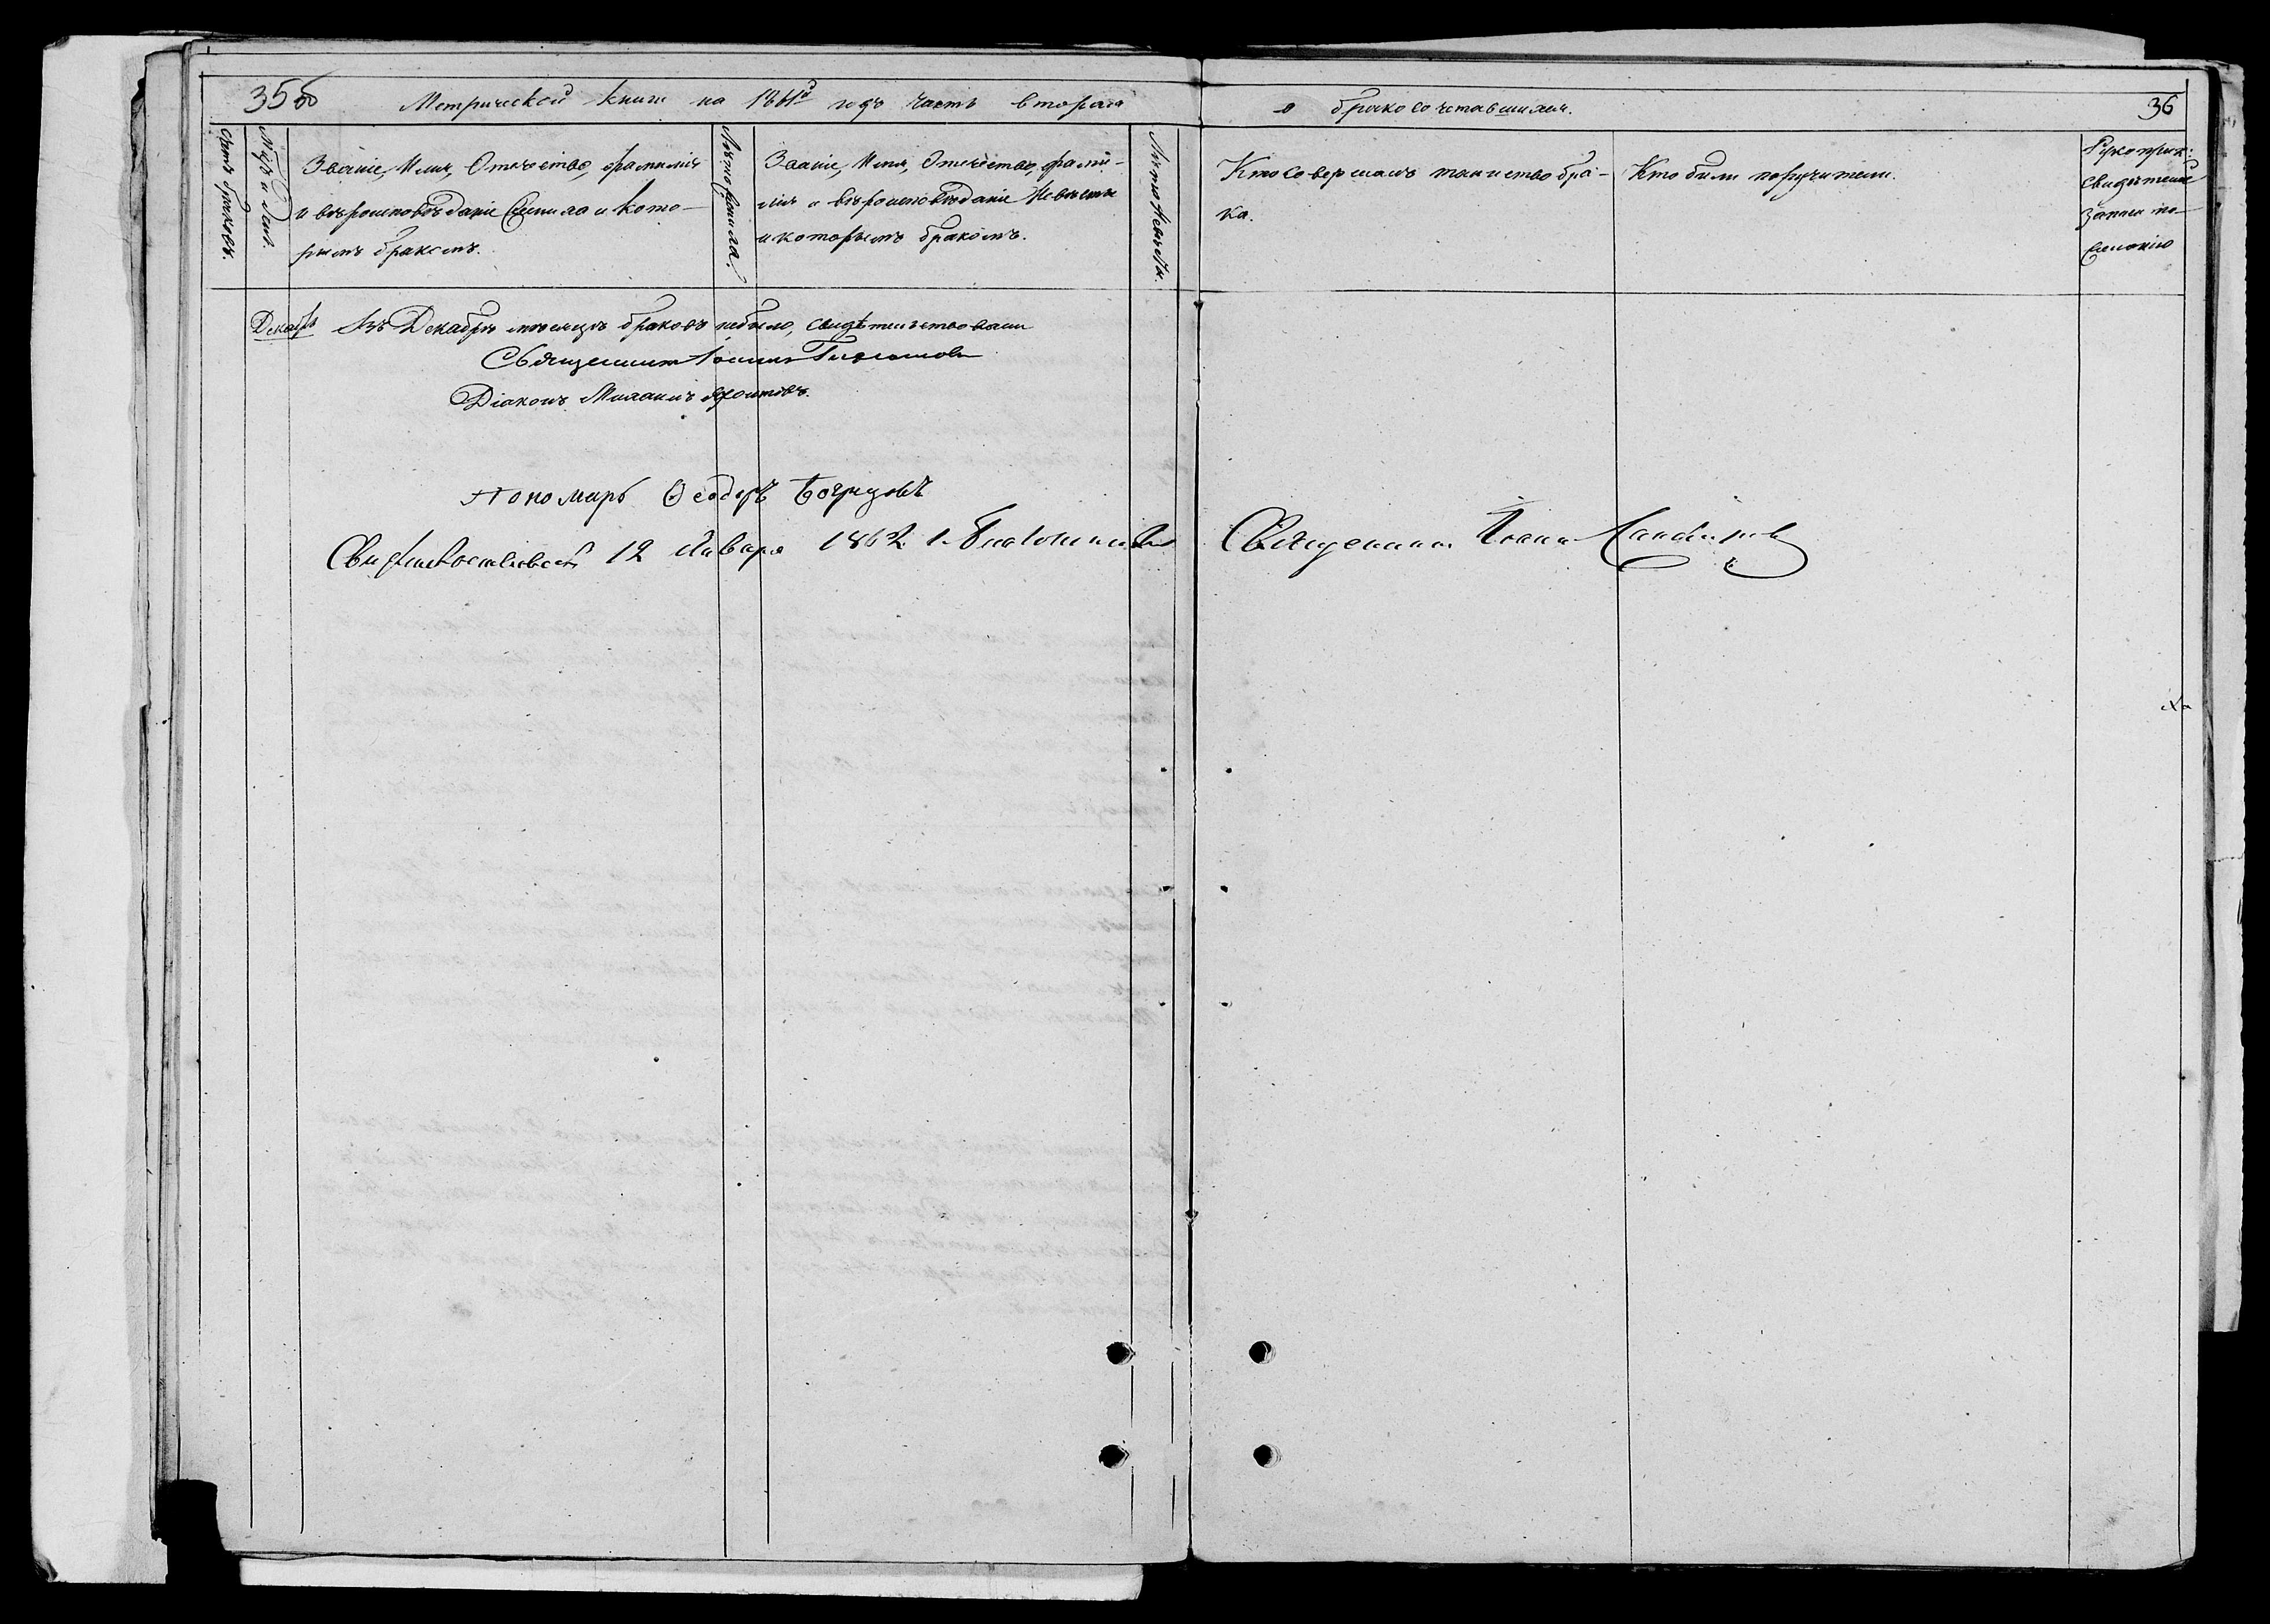 35об
Метрической книги на 1861й годъ часть вторая
о бракосочетавшихся.
36
Счетъ браковъ.
Мѣс. и День.
Званіе, Имя, Отчество, фамилія
и вѣроисповѣданіе Жениха и кото-
рымъ бракомъ.
Лѣто Жениха.
Званіе, Имя, Отчество, фами-
лія и вѣроисповѣданіе Невѣсты
и которымъ бракомъ.
Лѣто Невѣсты.
Кто совершалъ таинство бра-
ка.
Кто были поручители.
Рукоприк:
свидѣтелей
записи по
желанію
Декабрь
Въ Декабрѣ мѣсяцѣ браковъ небыло, свидѣтельствовали
Священникъ Іоаннъ
Діаконъ
Пономарь Ѳеодоръ
12 Января 1862 г.
Священникъ Іоаннъ